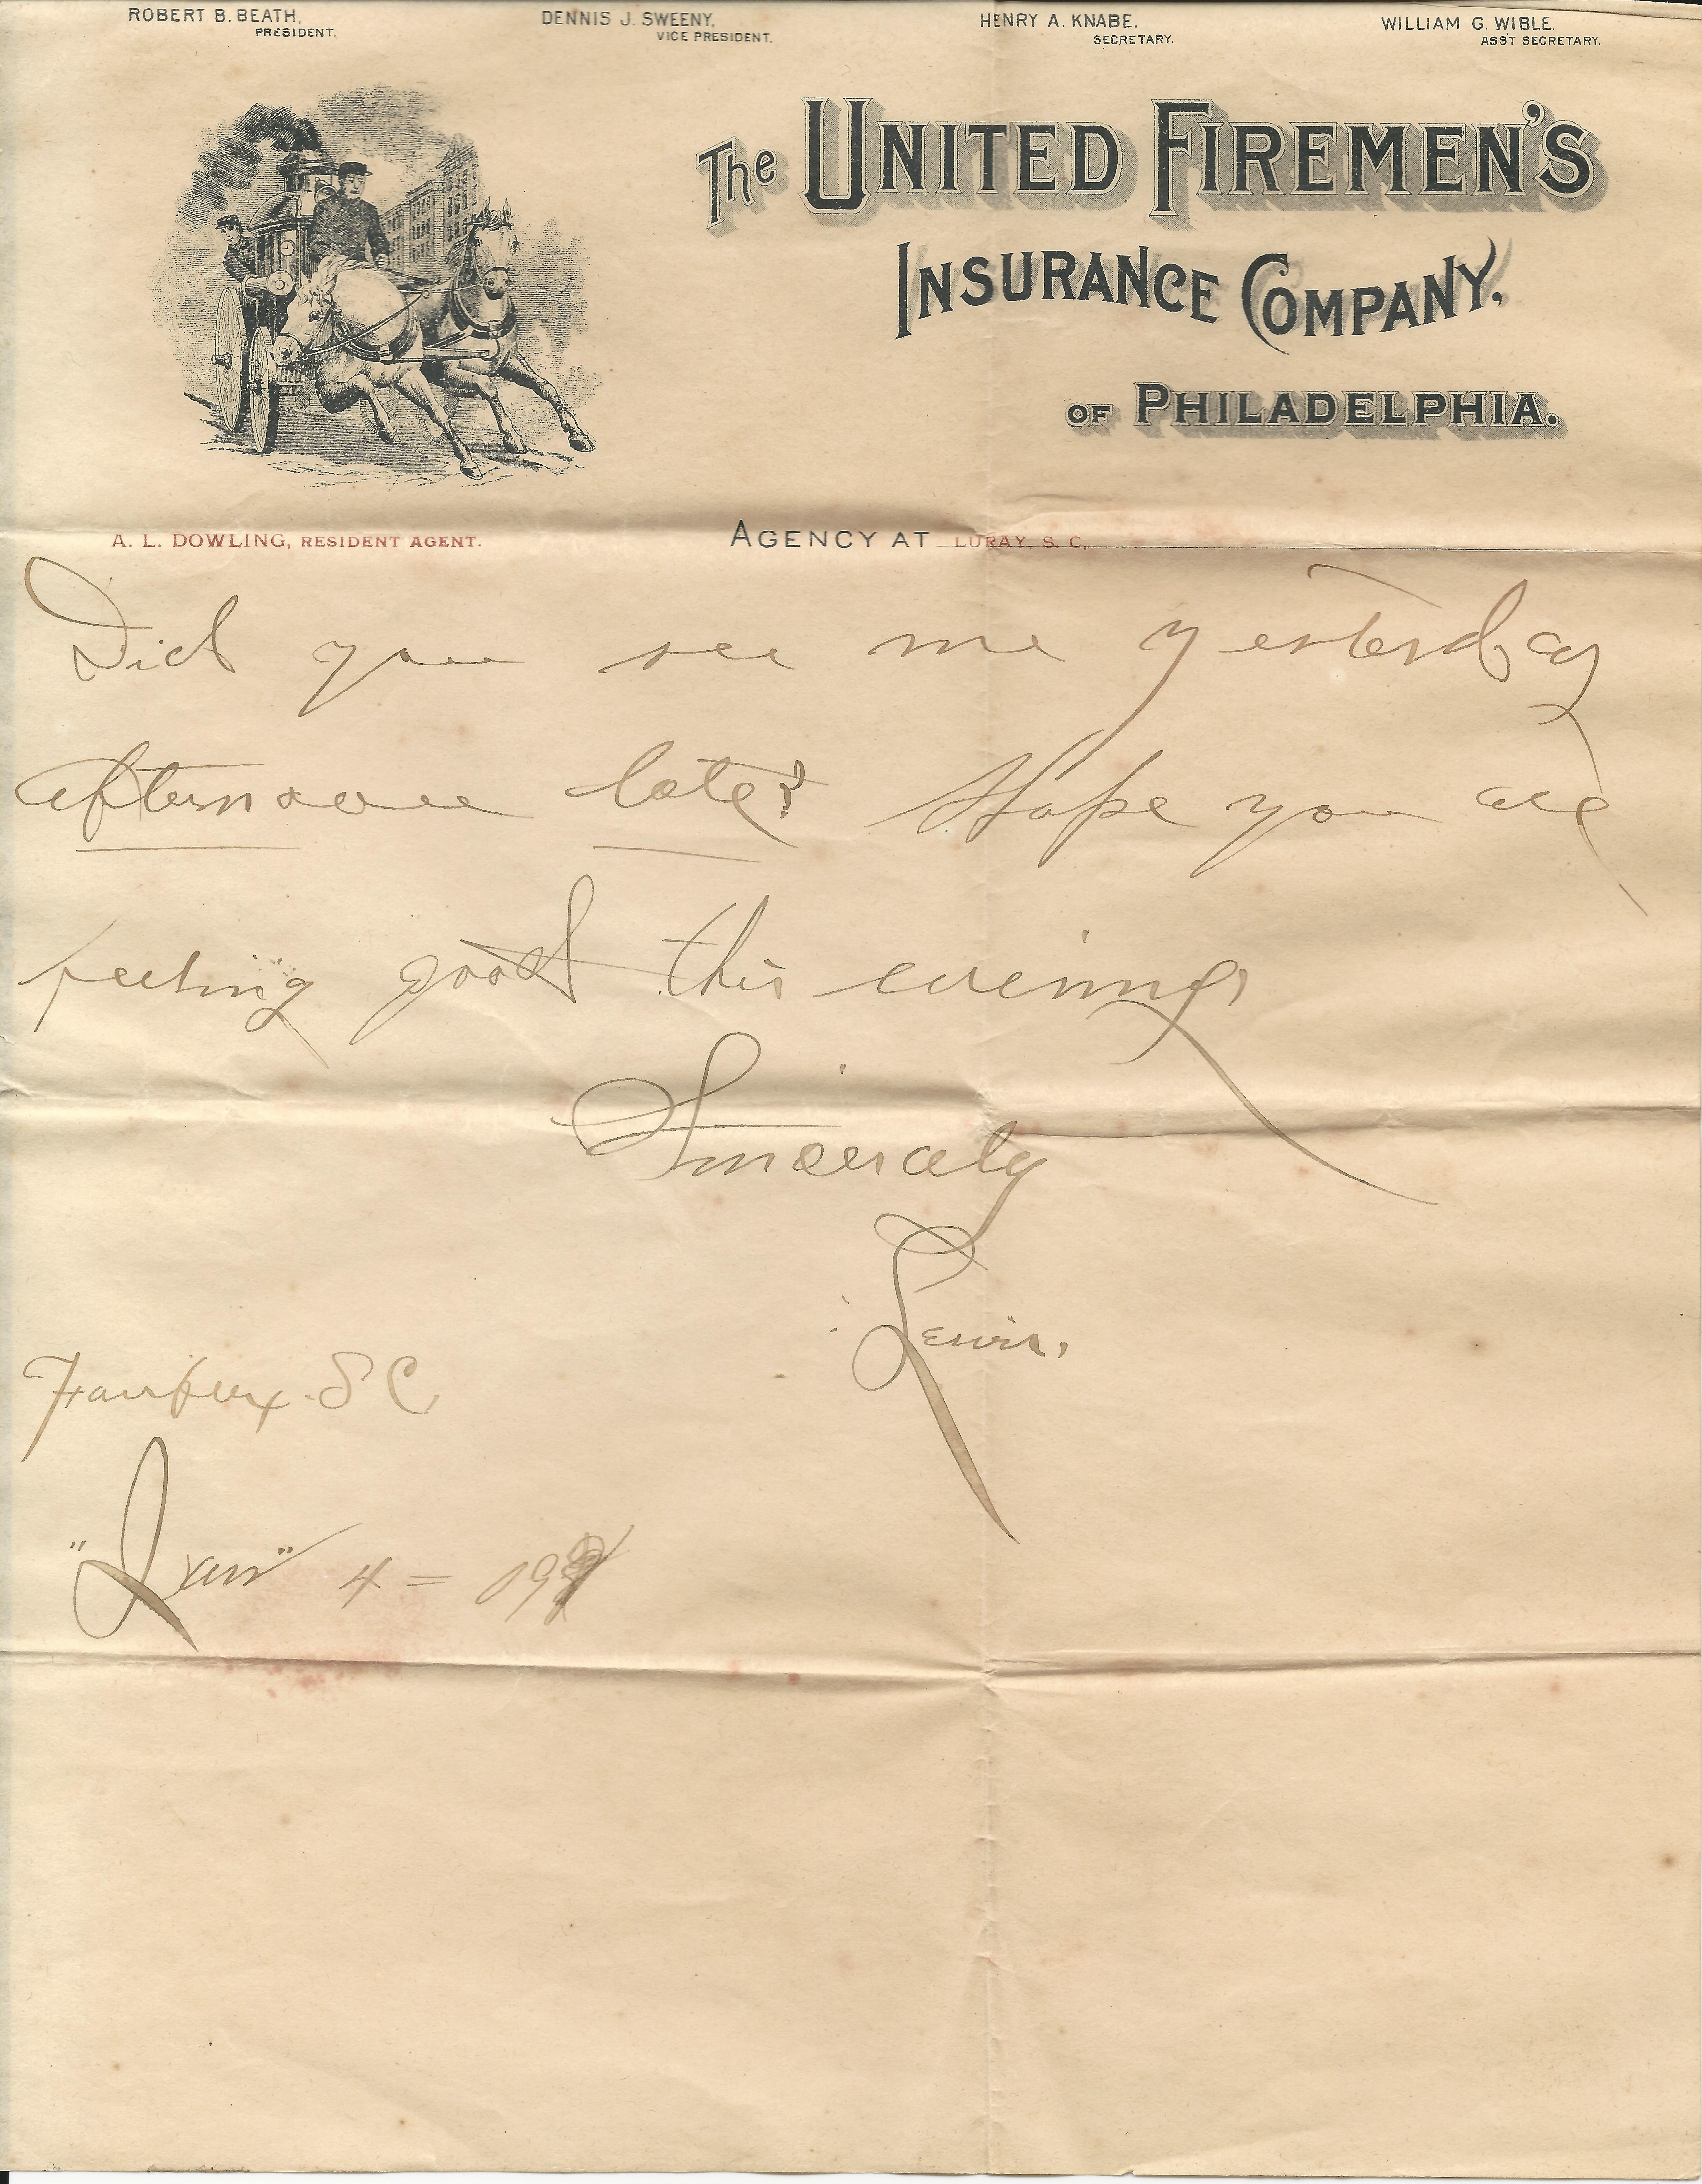 ROBERT B. BEATH, PRESIDENT. DENNIS J. SWEENY, VICE PRESIDENT. HENRY A. KNABE. SECRETARY. WILLIAM G. WIBLE. ASS'T SECRETARY.
The UNITED FIREMEN'S
INSURANCE COMPANY.
OF PHILADELPHIA.
A. L. DOWLING, RESIDENT AGENT. AGENCY AT LURAY, S. C.
Did you see me yesterday
afternoone late? Hope you are
feeling good this evening
Sincerely
Lewis.
Fairfax. S C
4 = 19